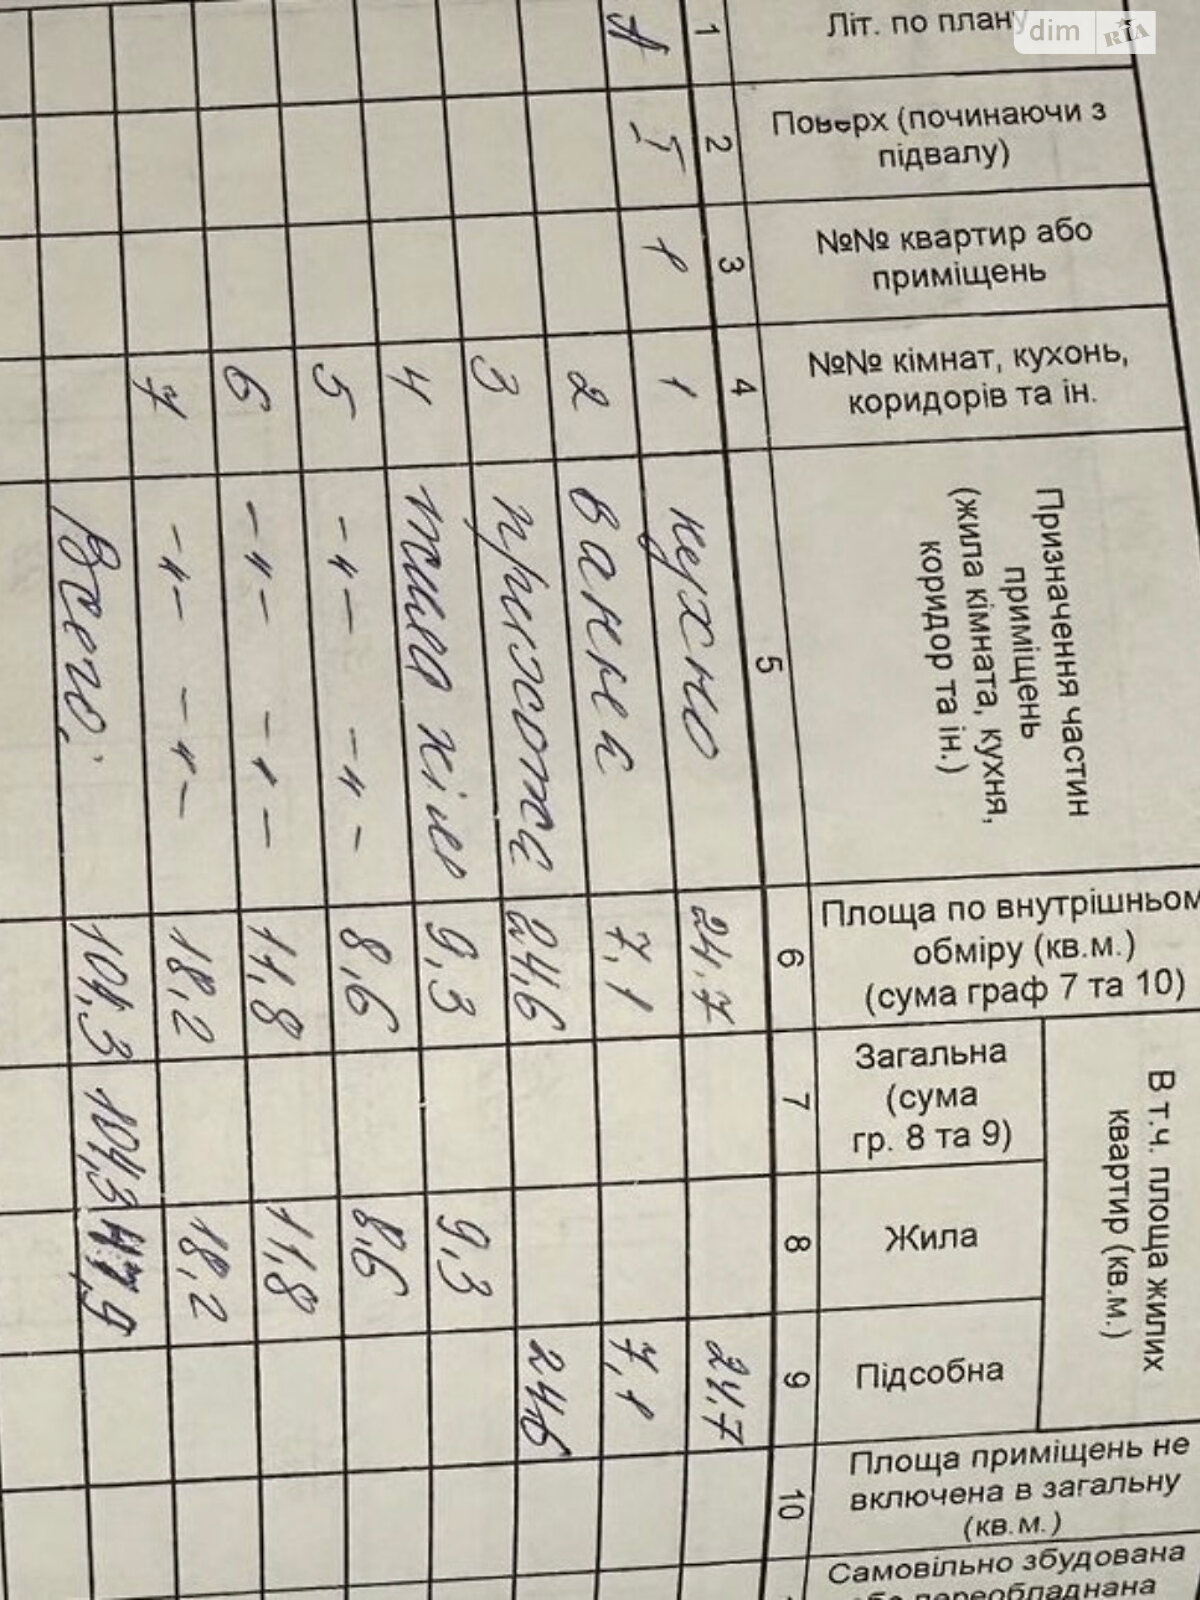 dim RIA
Літ. по плану
Поверх (починаючи з
підвалу)
№№ квартир або
приміщень
№№ кімнат, кухонь,
коридорів та ін.
Призначення частин
приміщень
(жила кімната, кухня,
коридор та ін.)
Площа по внутрішньом
обміру (кв.м.)
(сума граф 7 та 10)
В т.ч. площа жилих
квартир (кв.м.)
Загальна
(сума
гр. 8 та 9)
Жила
Підсобна
Площа приміщень не
включена в загальну
(кв.м.)
Самовільно збудована
або переобладнана
1 2 3 4 5 6 7 8 9 10
А 1 1 кухню 24.7 24.7
2 ванна 7,1 7,1
3 прихожа 24,6 24,6
4 9,3 9,3
5 -"- -"- 8,6 8,6
6 -"- -"- 11,8 11,8
7 -"- -"- 18,2 18,2
Всего: 104,3 104,3 47,9